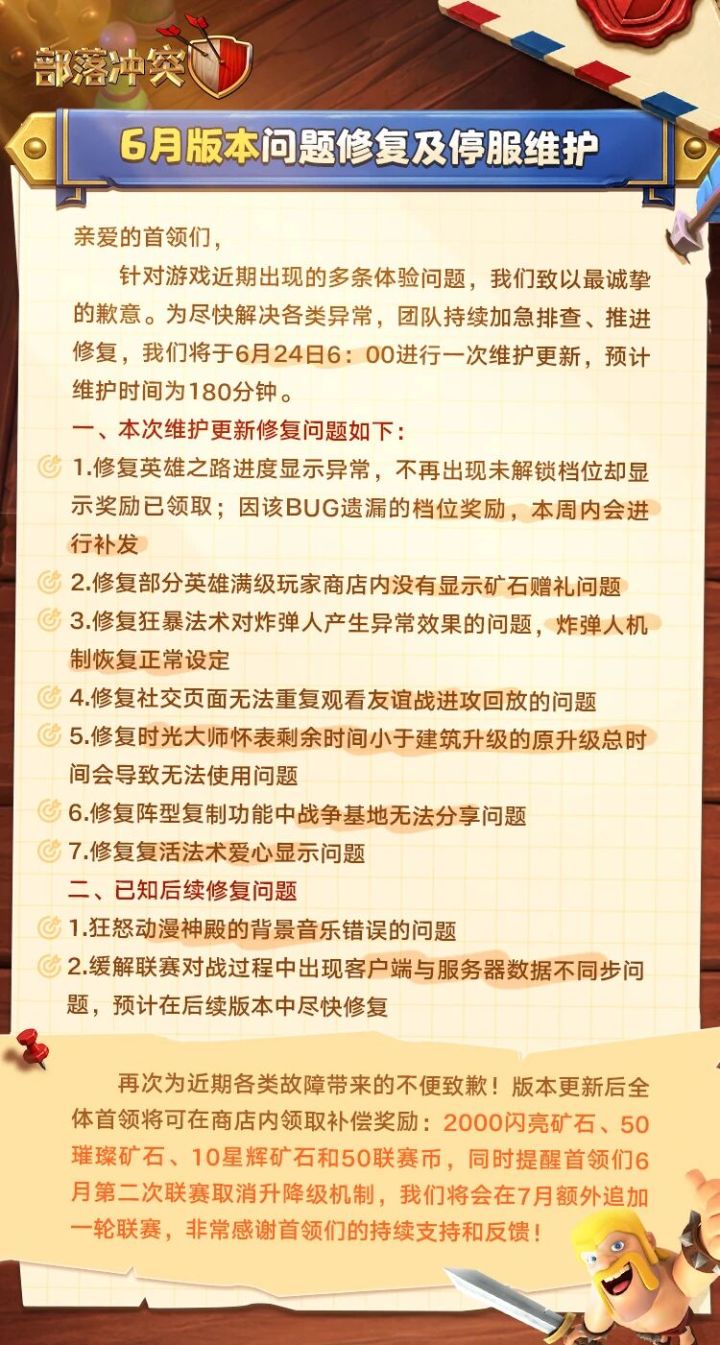 部落冲突
6月版本问题修复及停服维护
亲爱的首领们，
针对游戏近期出现的多条体验问题，我们致以最诚挚
的歉意。为尽快解决各类异常，团队持续加急排查、推进
修复，我们将于6月24日6：00进行一次维护更新，预计
维护时间为180分钟。
一、本次维护更新修复问题如下：
1.修复英雄之路进度显示异常，不再出现未解锁档位却显
示奖励已领取；因该BUG遗漏的档位奖励，本周内会进
行补发
2.修复部分英雄满级玩家商店内没有显示矿石赠礼问题
3.修复狂暴法术对炸弹人产生异常效果的问题，炸弹人机
制恢复正常设定
4.修复社交页面无法重复观看友谊战进攻回放的问题
5.修复时光大师怀表剩余时间小于建筑升级的原升级总时
间会导致无法使用问题
6.修复阵型复制功能中战争基地无法分享问题
7.修复复活法术爱心显示问题
二、已知后续修复问题
1.狂怒动漫神殿的背景音乐错误的问题
2.缓解联赛对战过程中出现客户端与服务器数据不同步问
题，预计在后续版本中尽快修复
再次为近期各类故障带来的不便致歉！版本更新后全
体首领将可在商店内领取补偿奖励：2000闪亮矿石、50
璀璨矿石、10星辉矿石和50联赛币，同时提醒首领们6
月第二次联赛取消升降级机制，我们将会在7月额外追加
一轮联赛，非常感谢首领们的持续支持和反馈！